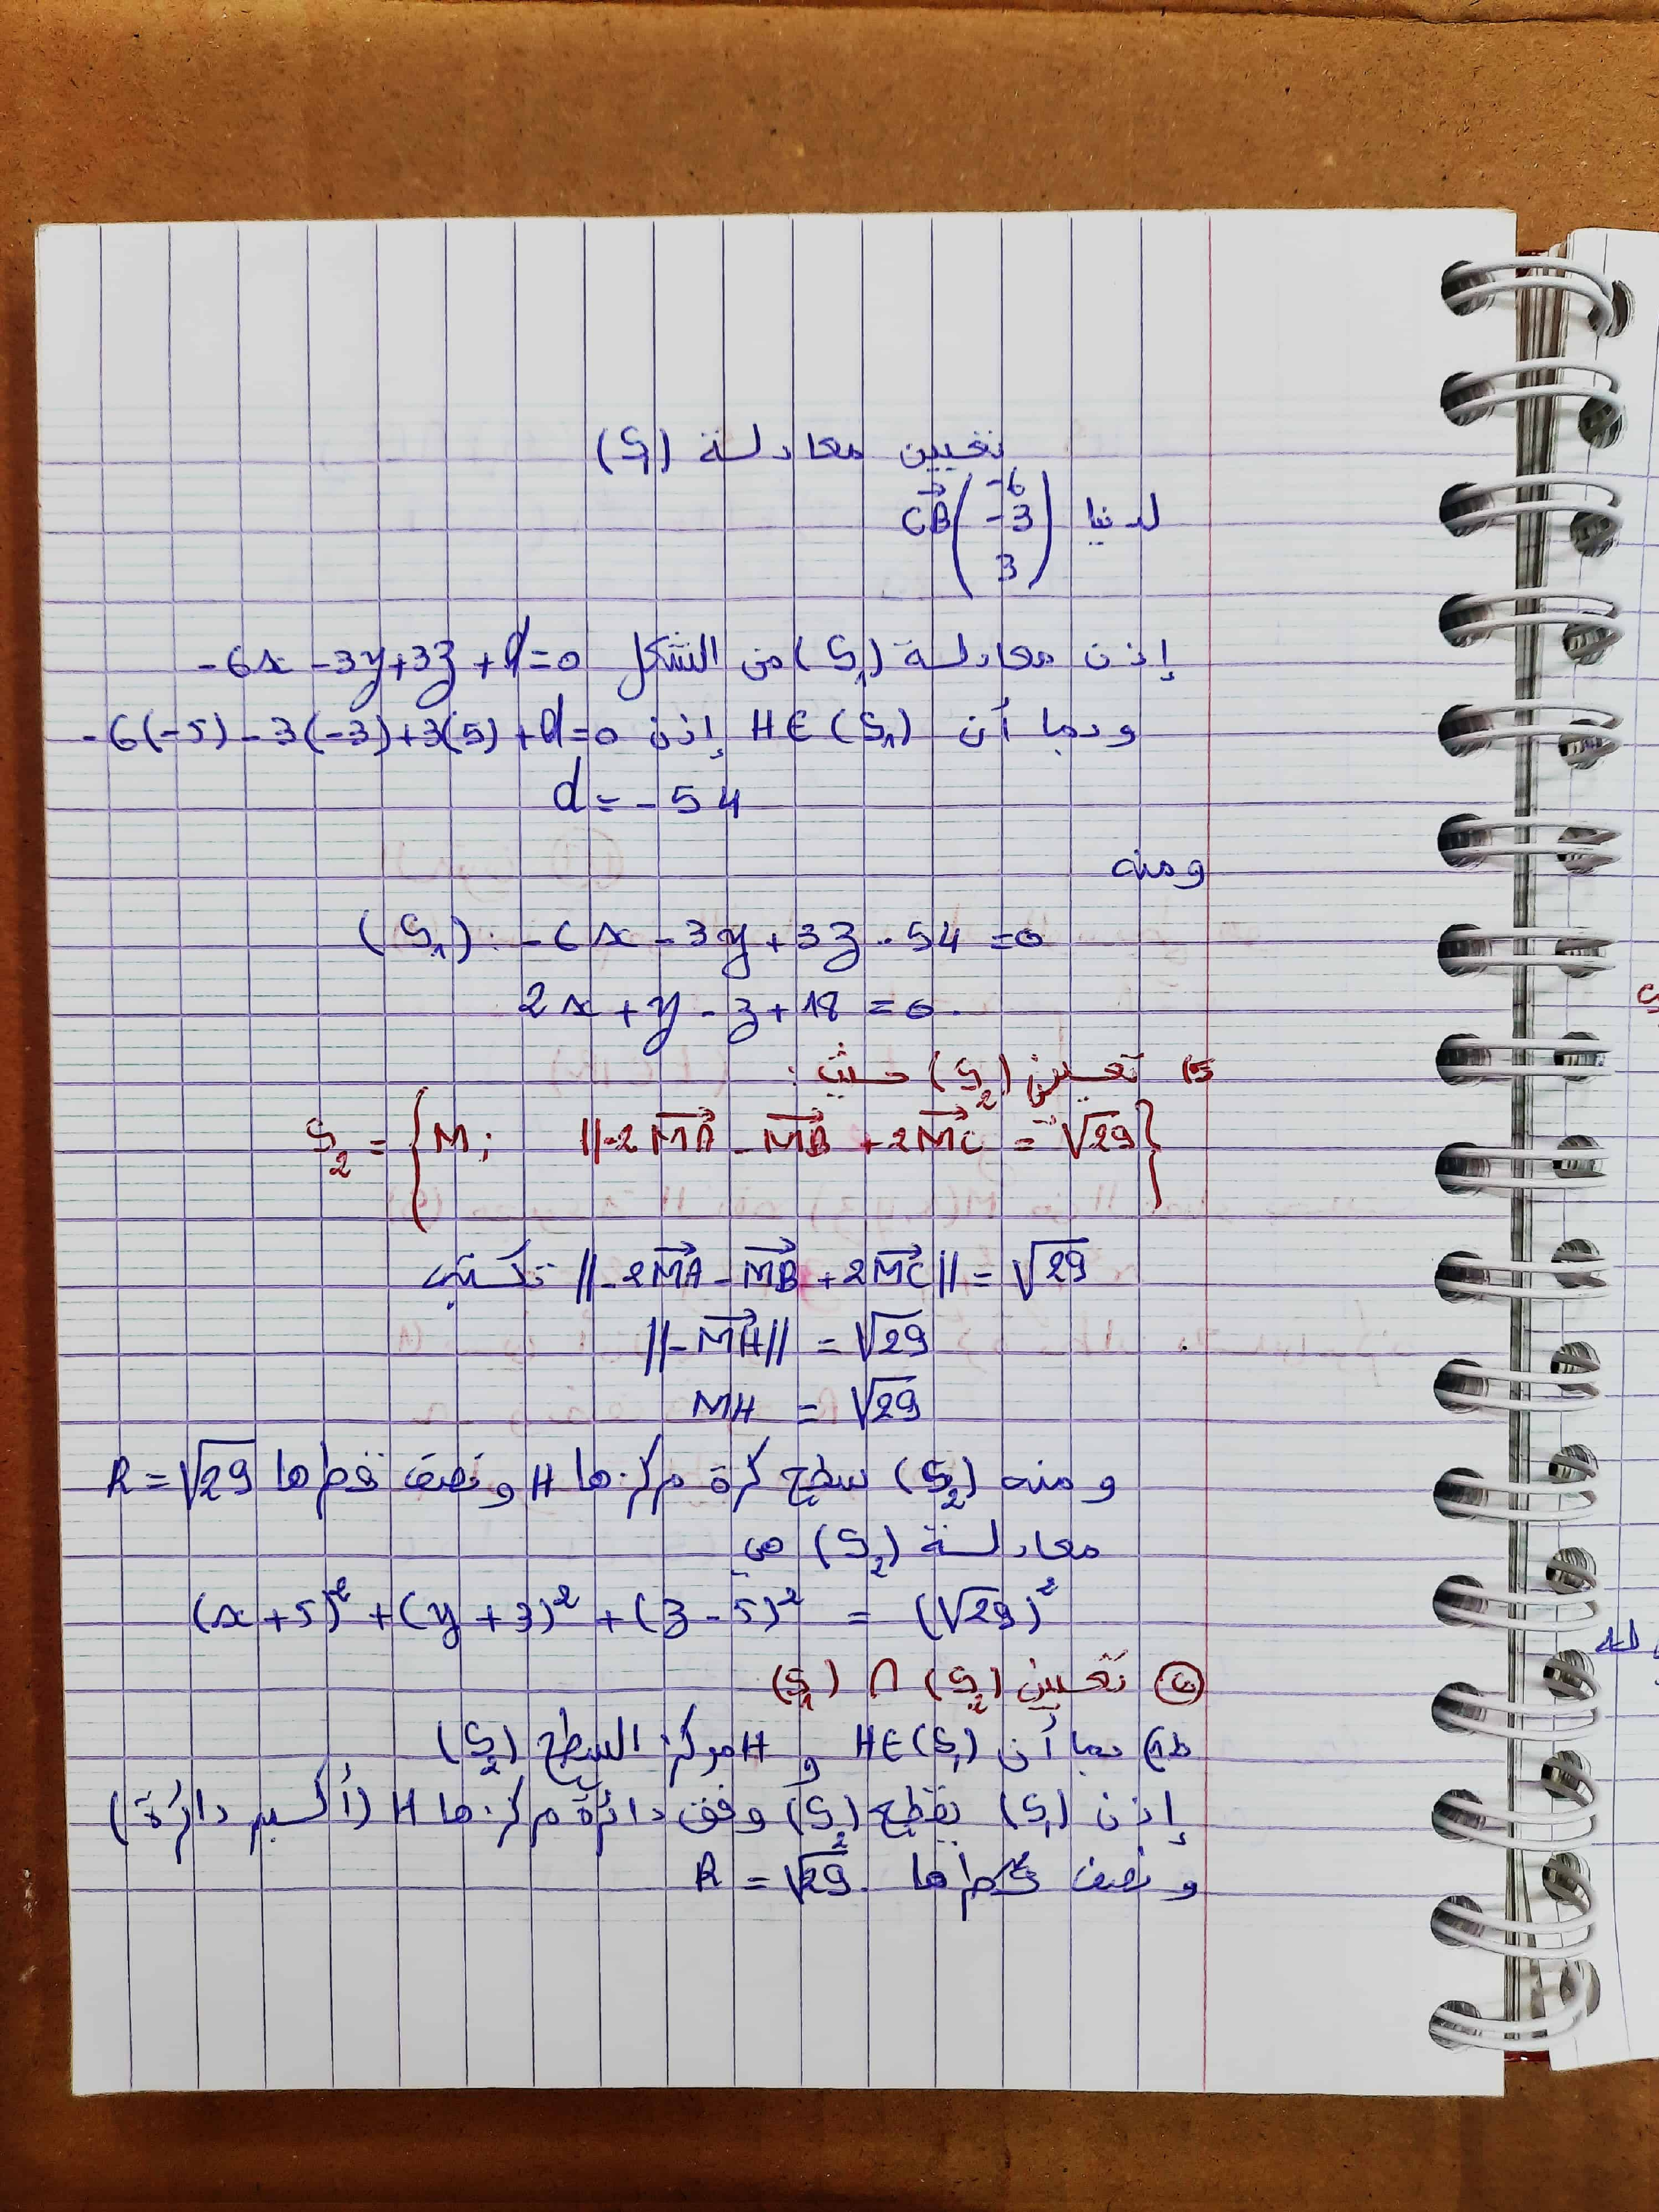 تعيين معادلة (S₁)
لدينا CB⃗ (-6 -3 3)
إذن معادلة (S₁) من الشكل -6x -3y+3z +d=0
وبما أن H∈(S₁) إذن -6(-5) -3(-3)+3(5)+d=0
d = -54
ومنه
(S₁): -6x -3y+3z -54 =0
2x+y-z+18 =0.
5) تعيين (S₂) حيث:
S₂ = {M; ||-2MA⃗ -MB⃗ +2MC⃗ = √29}
||-2MA⃗ -MB⃗ +2MC⃗|| = √29 تكتب
||-MH⃗|| = √29
MH = √29
ومنه (S₂) سطح كرة مركزها H ونصف قطرها R=√29
معادلة (S₂) هي
(x+5)² +(y+3)² +(z-5)² = (√29)²
تعيين (S₂) ∩ (S₁)
ط1) بما أن H∈(S₁) و H مركز السطح (S₂)
إذن (S₁) يقطع (S₂) وفق دائرة مركزها H (أكبر دائرة)
و نصف قطرها R = √29.